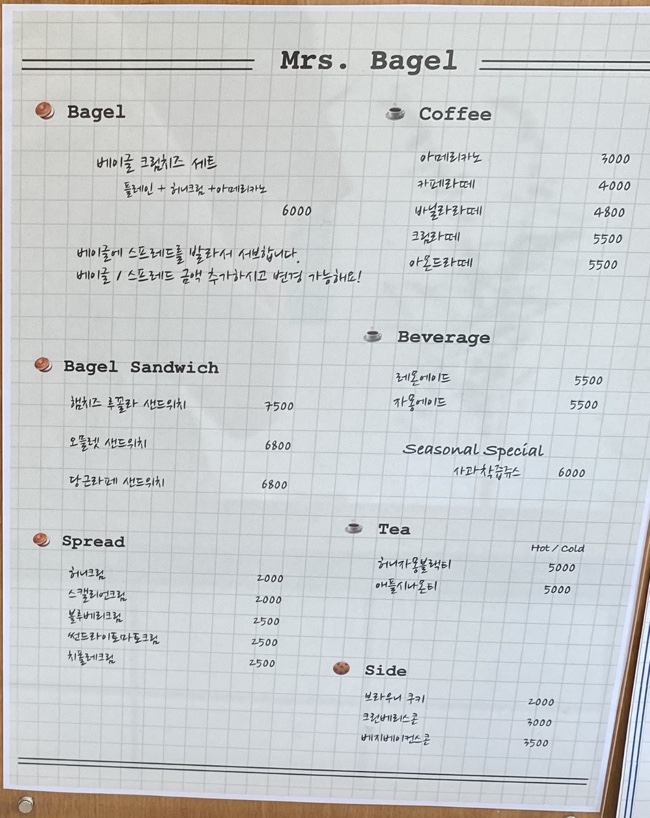 Mrs. Bagel
Bagel
베이글 크림치즈 세트
플레인 + 허니크림 + 아메리카노
6000
베이글에 스프레드를 발라서 서브합니다.
베이글 / 스프레드 금액 추가하시고 변경 가능해요!
Bagel Sandwich
햄치즈 루꼴라 샌드위치 7500
오믈렛 샌드위치 6800
당근라페 샌드위치 6800
Spread
허니크림 2000
스캘리언크림 2000
블루베리크림 2500
썬드라이토마토크림 2500
치폴레크림 2500
Coffee
아메리카노 3000
카페라떼 4000
바닐라라떼 4800
크림라떼 5500
아몬드라떼 5500
Beverage
레몬에이드 5500
자몽에이드 5500
Seasonal Special
사과착즙쥬스 6000
Tea
Hot / Cold
허니자몽블랙티 5000
애플시나몬티 5000
Side
브라우니 쿠키 2000
크랜베리스콘 3000
베지베이컨스콘 3500